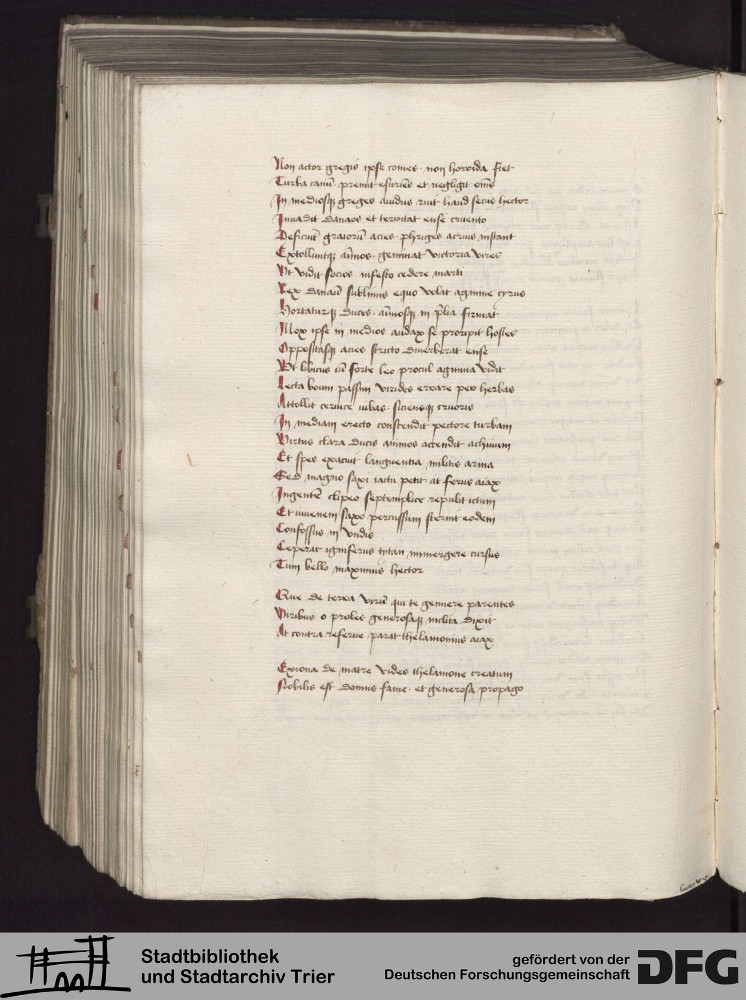 Non actor gregis ipse comes · non horrida fiet
Turba canū · premit esuriēs et negligit om̄s
In mediosq; greges auidus ruit haud secus hector
Inuadit danaos et territat ense cruento
Deficiūt graiorū acies · phriges acrius instant
Extolluntq; aīmos · geminat victoria vires
Vt vidit socios infesto cedere marti
Rex danaū sublimis equo volat agmine cyrus
Hortaturq; duces · aīmosq; in p̄lia firmat
Mox ipse in medios audax se proripit hostes
Oppositasq; acies stricto diuerberat ense
Vt libicus cū forte leo procul agmina vidit
Leta boum passim virides errare per herbas
Attollit ceruice iubas · siciensq; cruoris
In mediam erecto constendit pectore turbam
Virtus clara ducis animos accendit achiuum
Et spes exacuit languentia militis arma
Sed magno saxi iactu petit at ferus aiax
Ingentē clipeo septemplice repulit ictum
Et iuuenem saxo percussum sternit eodem
Confossus in vndis
Ceperat igniferus tytan inmergere cursus
Tum bello maximus hector
Que de terra virū qui te genuere parentes
Viribus o proles generosaq; inclita dixit
At contra referre parat thelamonius aiax
Exiona de matre vides thelamone creatum
Nobilis est domus fame · et generosa propago
Stadtbibliothek
und Stadtarchiv Trier
gefördert von der
Deutschen Forschungsgemeinschaft
DFG